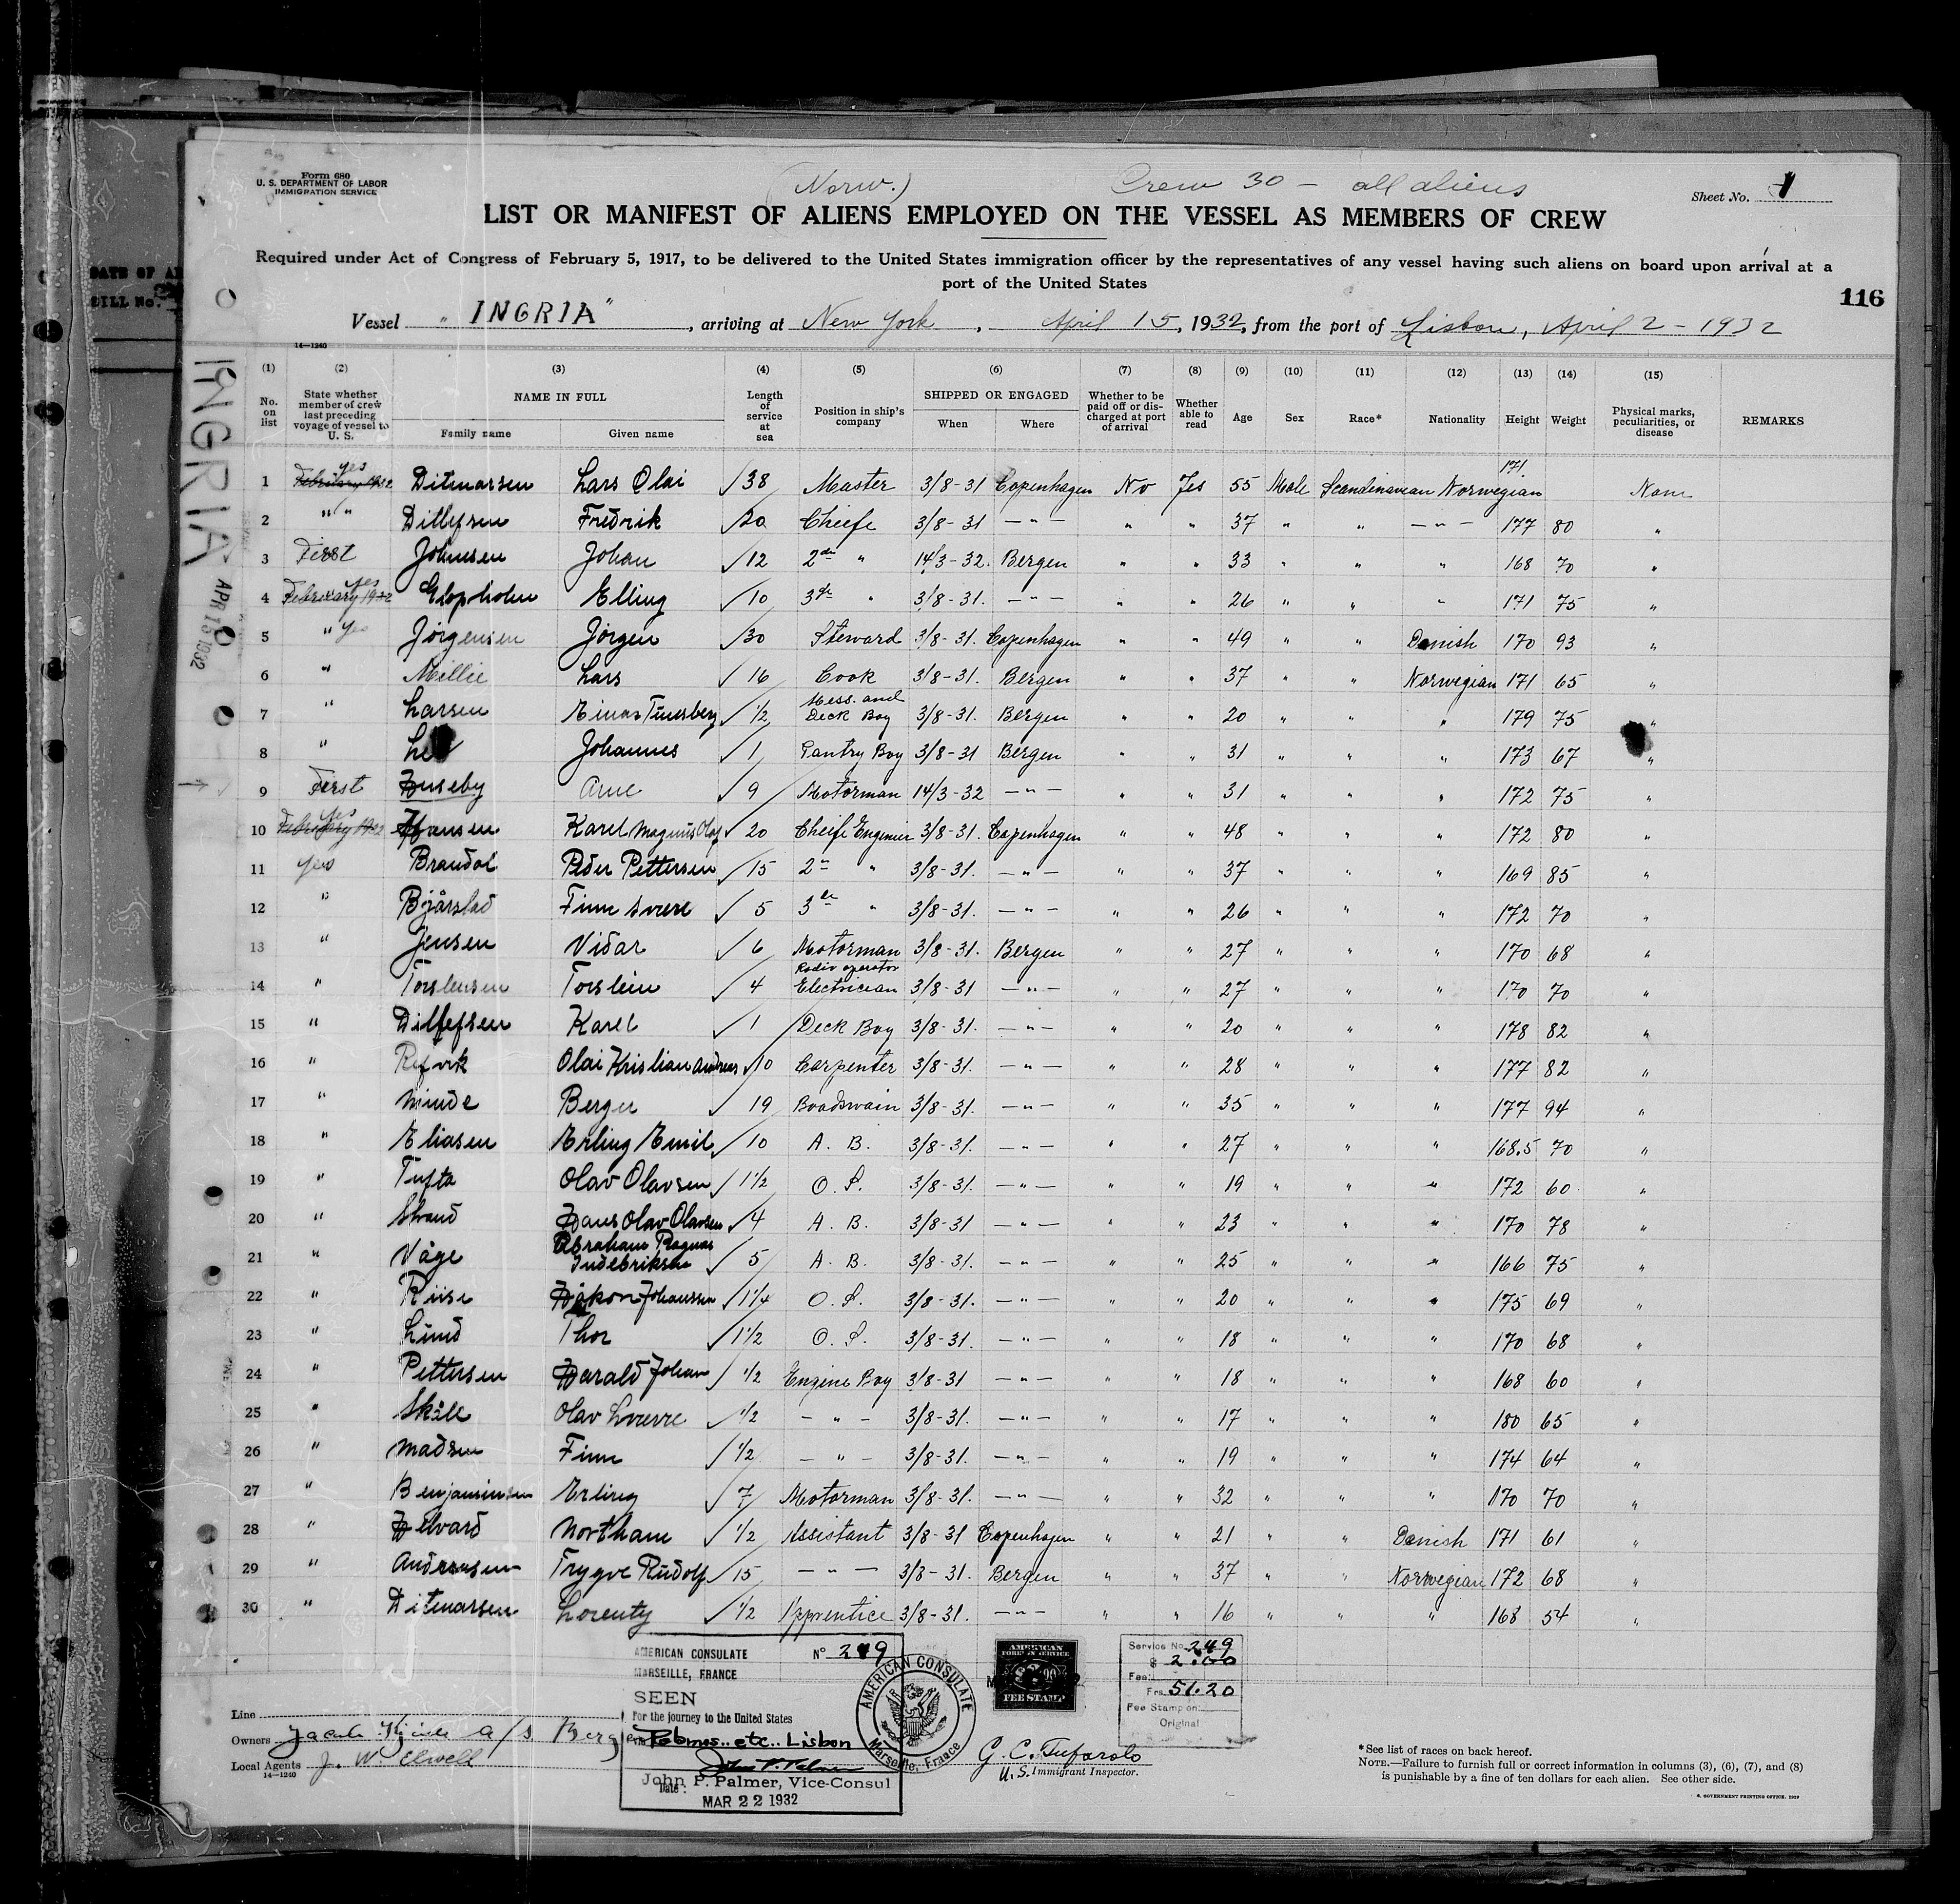 Form 680
U. S. DEPARTMENT OF LABOR
IMMIGRATION SERVICE
(Norw.) Crew 30 – all aliens
Sheet No. 1
LIST OR MANIFEST OF ALIENS EMPLOYED ON THE VESSEL AS MEMBERS OF CREW
Required under Act of Congress of February 5, 1917, to be delivered to the United States immigration officer by the representatives of any vessel having such aliens on board upon arrival at a
port of the United States
116
Vessel "INGRIA", arriving at New York, April 15, 1932, from the port of Lisbon, April 2 - 1932
14-1240
INGRIA APR 15 1932
(1) No. on list (2) State whether member of crew last preceding voyage of vessel to U. S. (3) NAME IN FULL Family name Given name (4) Length of service at sea (5) Position in ship's company (6) SHIPPED OR ENGAGED When Where (7) Whether to be paid off or discharged at port of arrival (8) Whether able to read (9) Age (10) Sex (11) Race* (12) Nationality (13) Height (14) Weight (15) Physical marks, peculiarities, or disease REMARKS
1 February 1932 yes Ditmarsen Lars Olai √ 38 Master 3/8-31 Copenhagen No Yes 55 Male Scandinavian Norwegian 171 None
2 " " Ditlefsen Fredrik √ 20 Cheife 3/8-31 —"— " " 37 " " —"— 177 80 "
3 First Johnsen Johan √ 12 2de " 14/3-32. Bergen " " 33 " " " 168 70 "
4 February 1932 yes Elling √ 10 3de " 3/8-31. —"— " " 26 " " " 171 75 "
5 " yes Jörgensen Jörgen √ 30 Steward 3/8-31. Copenhagen " " 49 " " Danish 170 93 "
6 " Millie Lars √ 16 Cook 3/8-31. Bergen " " 37 " " Norwegian 171 65 "
7 " Larsen Einar √ 1/2 Mess. and Deck Boy 3/8-31. Bergen " " 20 " " " 179 75 "
8 " Johannes √ 1 Pantry Boy 3/8-31 Bergen " " 31 " " " 173 67 "
9 First Huseby Arne √ 9 Motorman 14/3-32 —"— " " 31 " " " 172 75 "
10 February 1932 yes Hansen Karel Magnus Olaf √ 20 Cheife Enginier 3/8-31. Copenhagen " " 48 " " " 172 80 "
11 yes Brandal Peder Pettersen √ 15 2de " 3/8-31. —"— " " 37 " " " 169 85 "
12 " Bjårstad Finn Sverre √ 5 3de " 3/8-31. —"— " " 26 " " " 172 70 "
13 " Jensen Vidar √ 6 Motorman 3/8-31. Bergen " " 27 " " " 170 68 "
14 " Torstensen Torstein √ 4 Radio operator Electrician 3/8-31 —"— " " 27 " " " 170 70 "
15 " Ditlefsen Karel √ 1 Deck Boy 3/8-31. —"— " " 20 " " " 178 82 "
16 " Refvik Olai Kristian Andreas √ 10 Carpenter 3/8-31. —"— " " 28 " " " 177 82 "
17 " Minde Berger √ 19 Boadswain 3/8-31. —"— " " 35 " " " 177 94 "
18 " Eliasen Erling Emil √ 10 A. B. 3/8-31. —"— " " 27 " " " 168.5 70 "
19 " Tufta Olav Olavsen √ 1 1/2 O. S. 3/8-31. —"— " " 19 " " " 172 60 "
20 " Strand Hans Olav Olavsen √ 4 A. B. 3/8-31 —"— " " 23 " " " 170 78 "
21 " Våge Abraham Ragnar Indebriksen √ 5 A. B. 3/8-31. —"— " " 25 " " " 166 75 "
22 " Riise Håkon Johanssen √ 1 1/4 O. S. 3/8-31. —"— " " 20 " " " 175 69 "
23 " Lund Thor √ 1 1/2 O. S. 3/8-31. —"— " " 18 " " " 170 68 "
24 " Pettersen Harald Johan √ 1/2 Engine Boy 3/8-31 —"— " " 18 " " " 168 60 "
25 " Skåle Olav √ 1/2 —"— 3/8-31. —"— " " 17 " " " 180 65 "
26 " Madsen Finn √ 1/2 —"— 3/8-31. —"— " " 19 " " " 174 64 "
27 " Benjaminsen Erling √ 7 Motorman 3/8-31. —"— " " 32 " " " 170 70 "
28 " Helvard Northam √ 1/2 Assistant 3/8-31 Copenhagen " " 21 " " Danish 171 61 "
29 " Andreasen Trygve Rudolf √ 15 —"— 3/8-31. Bergen " " 37 " " Norwegian 172 68 "
30 " Ditmarsen Lorentz √ 1/2 Apprentice 3/8-31. —"— " " 16 " " " 168 54 "
AMERICAN CONSULATE No 249
MARSEILLE, FRANCE
SEEN
For the journey to the United States
Patmos.. etc.. Lisbon
John P. Palmer
John P. Palmer, Vice-Consul
Date:
MAR 22 1932
AMERICAN CONSULATE
Marseille, France
AMERICAN
FOREIGN SERVICE
FEE STAMP
Service No. 249
$ 2.00
Fee:
Frs. 51.20
Fee Stamp on:
Original
Line
Owners Jacob Kjöde A/S Bergen
Local Agents J. W. Elwell
14-1240
G. C. Tufarolo
U. S. Immigrant Inspector.
*See list of races on back hereof.
NOTE.—Failure to furnish full or correct information in columns (3), (6), (7), and (8)
is punishable by a fine of ten dollars for each alien. See other side.
U. S. GOVERNMENT PRINTING OFFICE. 1929